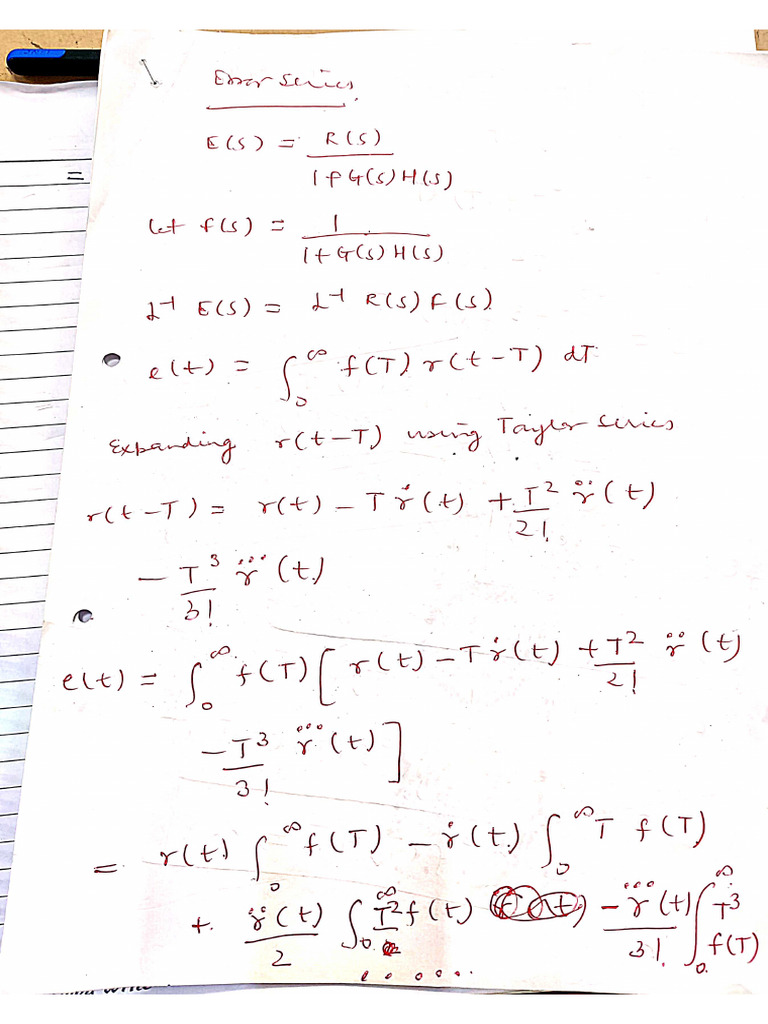 Error Series
E(s) = R(s) / 1+G(s)H(s)
let f(s) = 1 / 1+G(s)H(s)
L⁻¹ E(s) = L⁻¹ R(s) F(s)
e(t) = ∫₀^∞ f(T) r(t-T) dT
Expanding r(t-T) using Taylor series
r(t-T) = r(t) - T ṙ(t) + T²/2! r̈(t)
- T³/3! r⃛(t)
e(t) = ∫₀^∞ f(T) [ r(t) - T ṙ(t) + T²/2! r̈(t)
- T³/3! r⃛(t) ]
= r(t) ∫₀^∞ f(T) - ṙ(t) ∫₀^∞ T f(T)
+ r̈(t)/2 ∫₀^∞ T² f(t) - r⃛(t)/3! ∫₀^∞ T³ f(T)
......